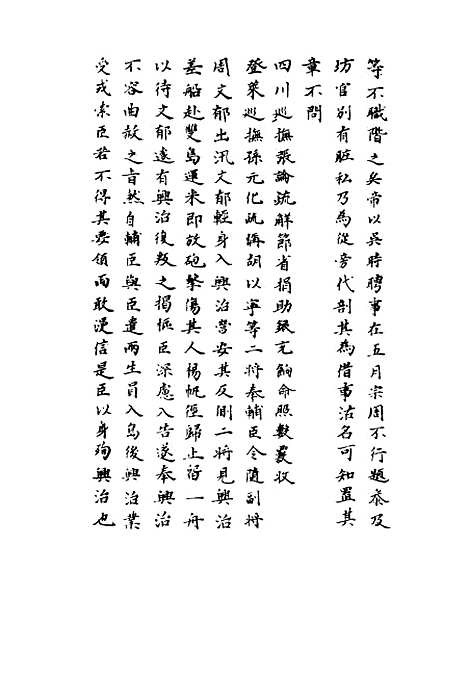 等不職階之矣帝以吳時聘事在五月宗周不行題叅及
坊官别有賍私乃為從旁代剖其為借事沽名可知置其
章不問
四川廵撫張論疏解節省捐助銀充餉命照數覈收
登萊廵撫孫元化疏稱胡以寧等二將奉輔臣令隨副將
周文郁出汛文郁輕身入興治營安其反側二將見興治
差船赴雙島運米即放砲擊傷其人揚帆徑歸止留一舟
以待文郁遂有興治復叛之揭樞臣深慮入告遂奉興治
不容曲赦之旨然自輔臣與臣遣兩生員入島後興治業
受戎索臣若不得其要領而敢漫信是臣以身殉興治也